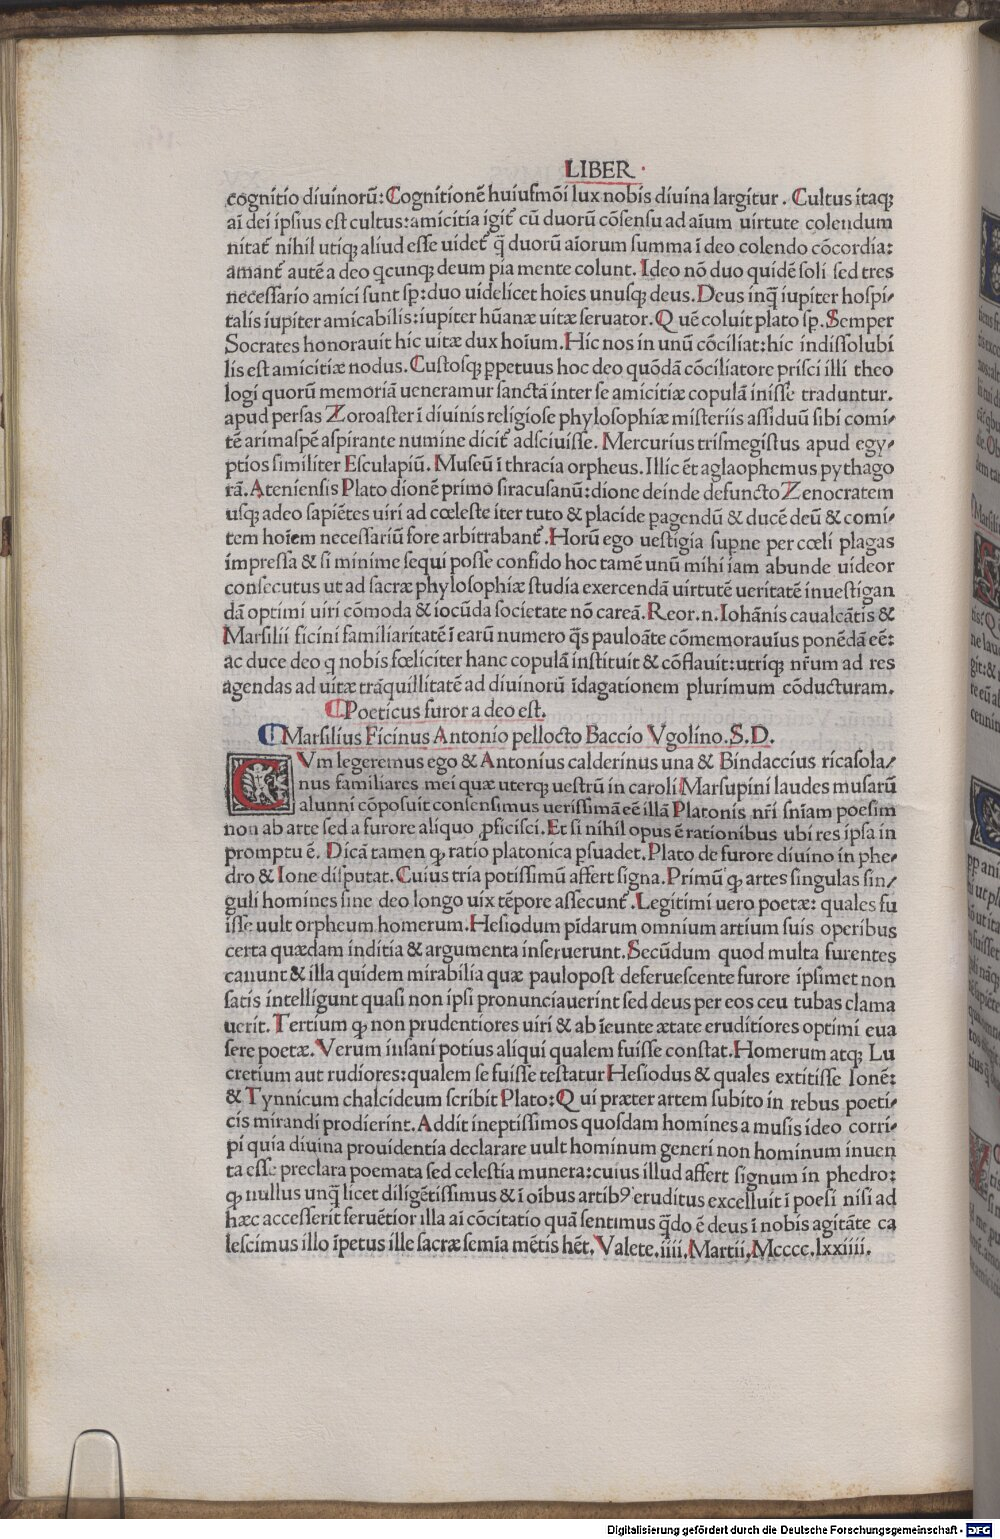 LIBER
cognitio diuinorū: Cognitionē huiuſmōi lux nobis diuina largitur. Cultus itaqȝ
aī dei ipſius eſt cultus: amicitia igit̃ cū duorū cōſenſu ad aīum uirtute colendum
nitat̃ nihil utiqȝ aliud eſſe uidet̃ q̄ duorū aīorum ſumma ī deo colendo cōcordia:
amant̃ autē a deo q̨cunqȝ deum pia mente colunt. Ideo nō duo quidē ſoli ſed tres
neceſſario amici ſunt ſp̨: duo uidelicet hoīes unuſqȝ deus. Deus inq̄ iupiter hoſpi⸗
talis iupiter amicabilis: iupiter hūanæ uitæ ſeruator. Quē coluit plato ſp̨. Semper
Socrates honorauit hic uitæ dux hoīum. Hic nos in unū cōciliat: hic indiſſolubi
lis eſt amicitiæ nodus. Cuſtoſqȝ p̨petuus hoc deo quōdā cōciliatore priſci illi theo
logi quorū memoriā ueneramur ſanctā inter ſe amicitiæ copulā iniſſe traduntur.
apud perſas Zoroaſter ī diuinis religioſe phyloſophiæ miſteriis aſſiduū ſibi comi⸗
tē arimaſpē aſpirante numine dicit̃ adſciuiſſe. Mercurius triſmegiſtus apud egy⸗
ptios ſimiliter Eſculapiū. Muſeū ī thracia orpheus. Illic ēt aglaophemus pythago
rā. Atenienſis Plato dionē primo ſiracuſanū: dione deinde defuncto Zenocratem
uſqȝ adeo ſapiētes uiri ad cœleſte iter tuto & placide pagendū & ducē deū & comi⸗
tem hoīem neceſſariū fore arbitrabant̃. Horū ego ueſtigia ſupne per cœli plagas
impreſſa & ſi minime ſequi poſſe confido hoc tamē unū mihi iam abunde uideor
conſecutus ut ad ſacræ phyloſophiæ ſtudia exercendā uirtutē ueritatē inueſtigan
dā optimi uiri cōmoda & iocūda ſocietate nō careā. Reor.n. Iohānis caualcātis &
Marſilii ficini familiaritatē ī earū numero q̄s pauloāte cōmemorauius ponēdā eē:
ac duce deo q nobis fœliciter hanc copulā inſtituit & cōflauit: utriqȝ nr̄um ad res
agendas ad uitæ trāquillitatē ad diuinorū īdagationem plurimum cōducturam.
Poeticus furor a deo eſt.
Marſilius Ficinus Antonio pellocto Baccio Vgolino. S. D.
CVm legeremus ego & Antonius calderinus una & Bindaccius ricaſola⸗
nus familiares mei quæ uterqȝ ueſtrū in caroli Marſupini laudes muſarū
alunni cōpoſuit conſenſimus ueriſſimā eē illā Platonis nr̄i ſn̄iam poeſim
non ab arte ſed a furore aliquo p̨ficiſci. Et ſi nihil opus ē rationibus ubi res ipſa in
promptu ē. Dicā tamen qȝ ratio platonica p̨ſuadet. Plato de furore diuino in phe⸗
dro & Ione diſputat. Cuius tria potiſſimū affert ſigna. Primū qȝ artes ſingulas ſin⸗
guli homines ſine deo longo uix tēpore aſſecunt̃. Legitimi uero poetæ: quales fu
iſſe uult orpheum homerum. Heſiodum pīdarum omnium artium ſuis operibus
certa quædam inditia & argumenta inſeruerunt. Secūdum quod multa furentes
canunt & illa quidem mirabilia quæ paulopoſt deferueſcente furore ipſimet non
ſatis intelligunt quaſi non ipſi pronunciauerint ſed deus per eos ceu tubas clama
uerit. Tertium qȝ non prudentiores uiri & ab īeunte ætate eruditiores optimi eua
ſere poetæ. Verum inſani potius aliqui qualem fuiſſe conſtat. Homerum atqȝ Lu
cretium aut rudiores: qualem ſe fuiſſe teſtatur Heſiodus & quales extitiſſe Ionē:
& Tynnicum chalcideum ſcribit Plato: Qui præter artem ſubito in rebus poeti⸗
cis mirandi prodierint. Addit ineptiſſimos quoſdam homines a muſis ideo corri⸗
pi quia diuina prouidentia declarare uult hominum generi non hominum inuen
ta eſſe preclara poemata ſed celeſtia munera: cuius illud affert ſignum in phedro:
qȝ nullus unq̄ licet diligētiſſimus & ī oībus artibꝰ eruditus excelluit ī poeſi niſi ad
hæc acceſſerit feruētior illa aī cōcitatio quā ſentimus q̄do ē deus ī nobis agitāte ca
leſcimus illo īpetus ille ſacræ ſemīa mētis hēt. Valete. iiii. Martii. Mcccc.lxxiiii.
Digitalisierung gefördert durch die Deutsche Forschungsgemeinschaft - DFG